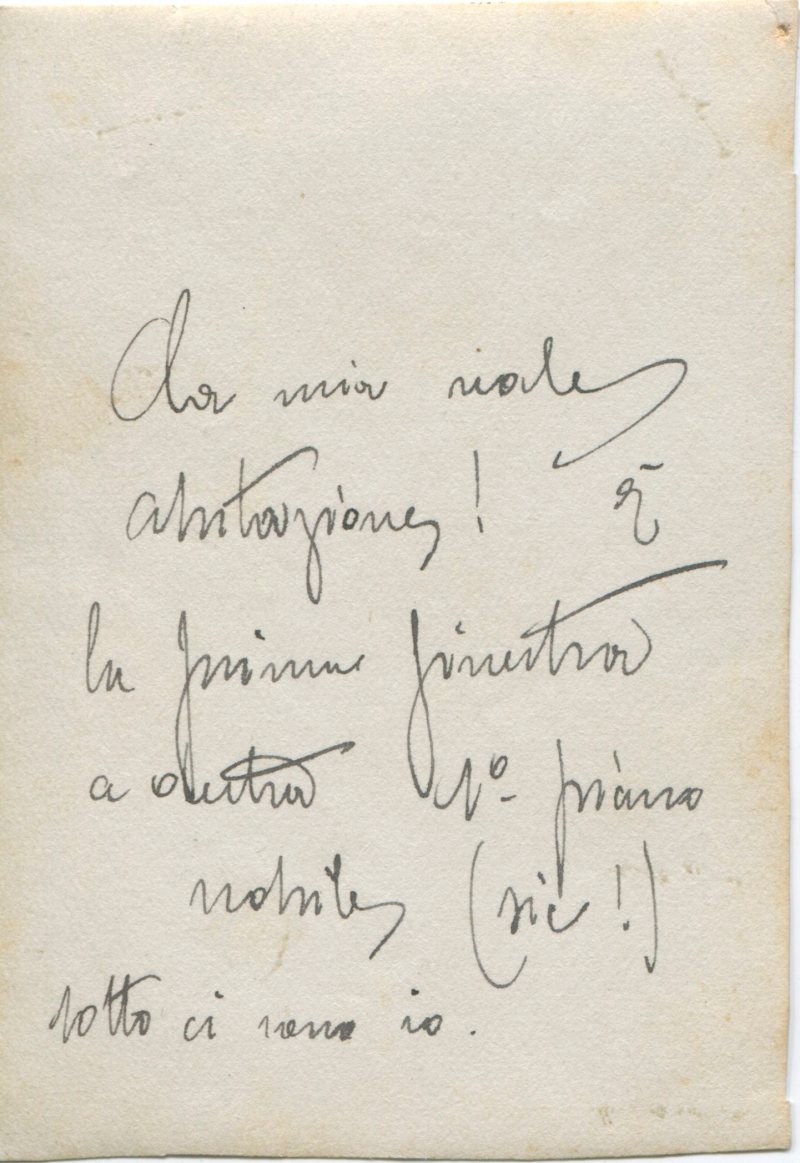 La mia reale
abitazione! È
la prima finestra
a destra 1º piano
nobile (sic!)
sotto ci sono io.